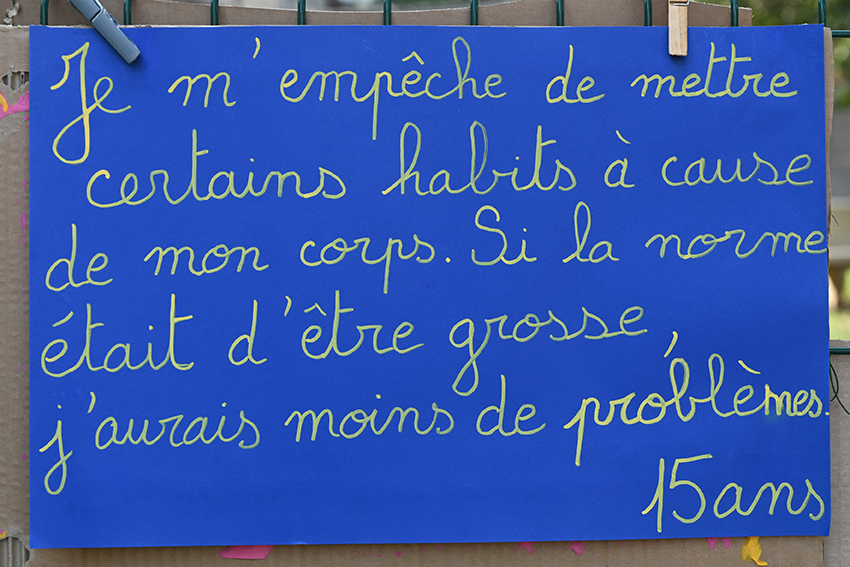 Je m'empêche de mettre
certains habits à cause
de mon corps. Si la norme
était d'être grosse,
j'aurais moins de problèmes.
15 ans